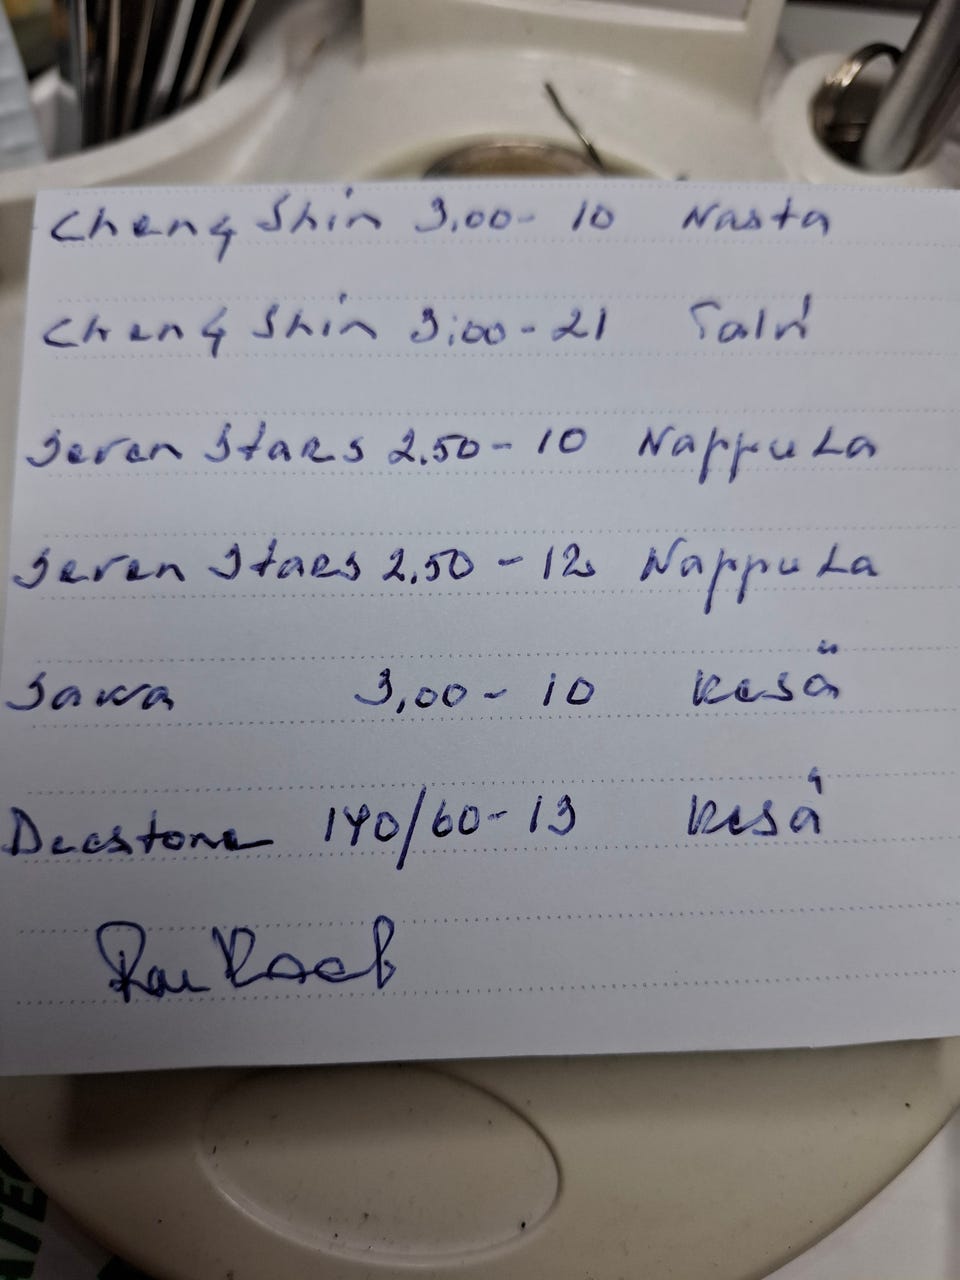 Cheng Shin 3,00 - 10 Nasta
Cheng Shin 3,00 - 21 Talvi
Seven Stars 2,50 - 10 Nappula
Seven Stars 2,50 - 12 Nappula
Sawa 3,00 - 10 Kesä
Deestone 140/60 - 13 Kesä